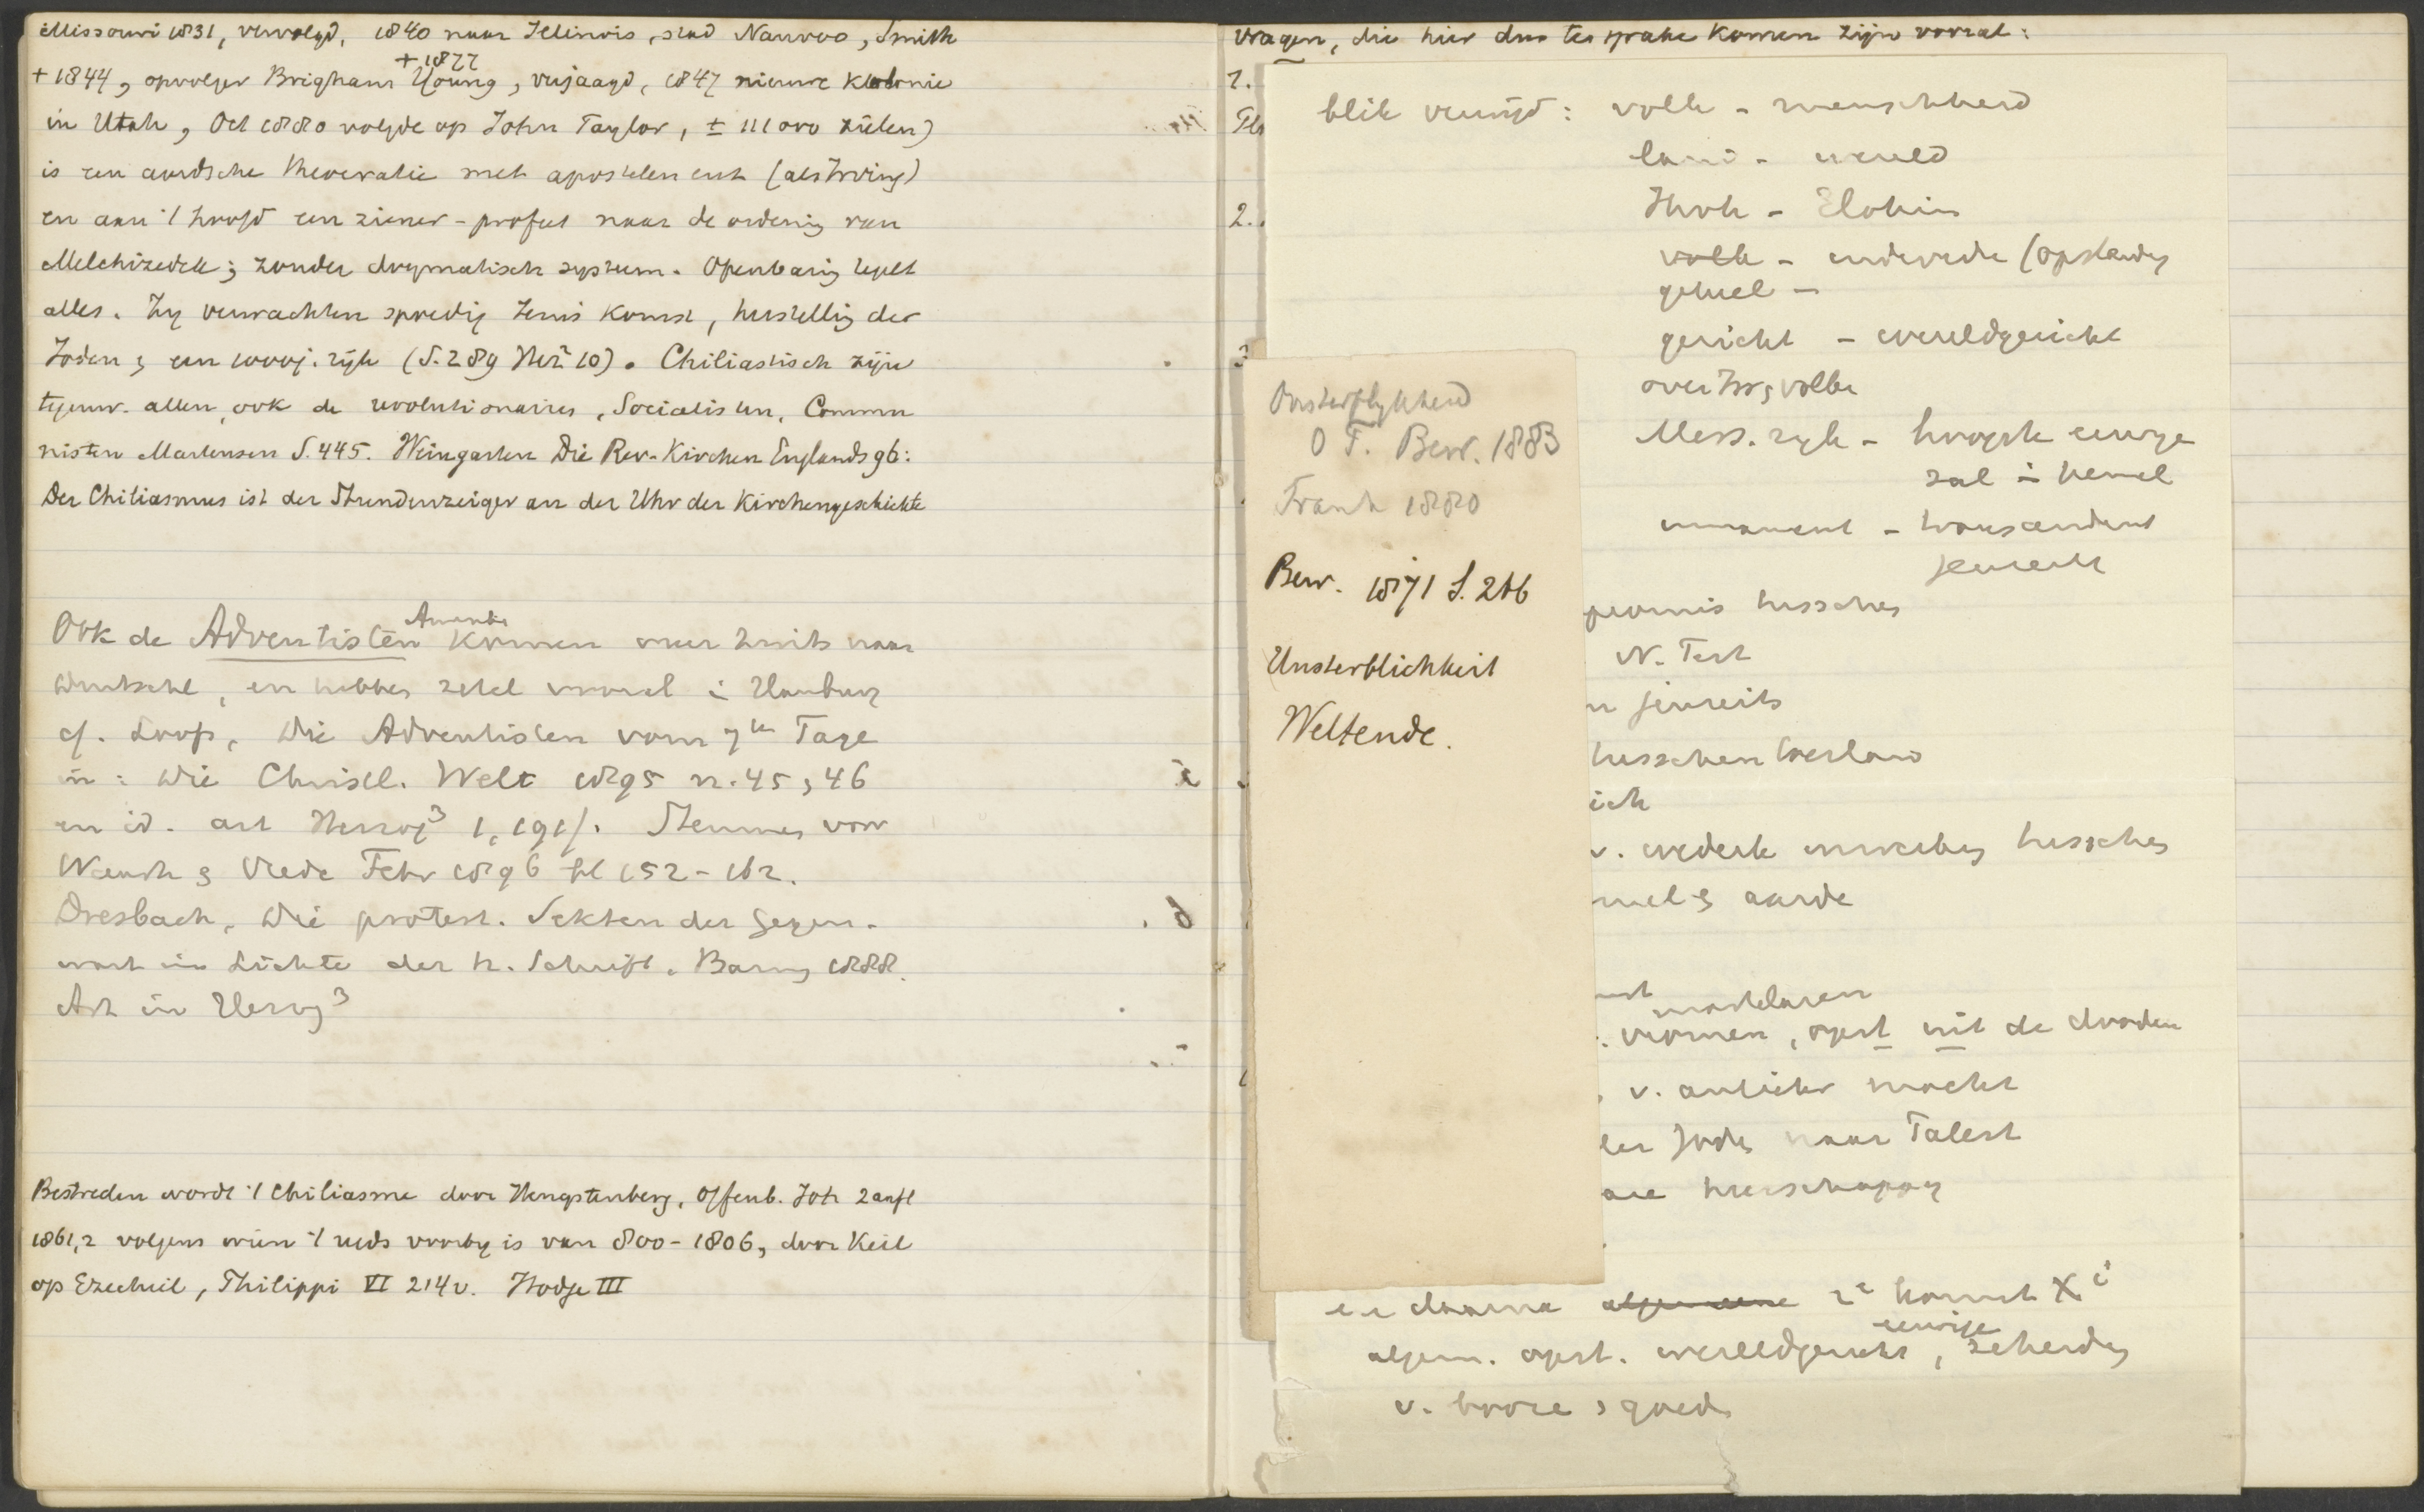 Missouri 1831, vervolgd, 1840 naar Illinois, stad Nauvoo, Smith
+ 1877
+ 1844, opvolger Brigham Young, verjaagd, 1847 nieuwe Kolonie
in Utah, Oct 1880 volgde op John Taylor, ± 111000 zielen)
is een aardsche theocratie met apostelen enz (als Irving)
en aan 't hoofd een ziener-profeet naar de ordenig van
Melchizedek; zonder dogmatisch systeem. Openbarig regelt
alles. Zy verwachten spoedig Jezus komst, herstellig der
Joden, een 1000j. rijk (S. 289 Herz 10). Chiliastisch zijn
tegenw. allen, ook de revolutionaires, Socialisten, Commu
nisten Martensen S. 445. Weingarten Die Rev-Kirchen Englands 96:
Der Chiliasmus ist der Stundenzeiger an der Uhr der Kirchengeschichte
Amerika
Ook de Adventisten komen meer truits naar
Duitschl, en hebben zetel vooral i Hamburg
cf. Loofs, Die Adventisten vom 7ten Tage
in: Die Christl. Welt 1895 n. 45, 46
en id. art Herzog³ 1, 191f. Stemmen voor
Waarh & Vrede Febr 1896 bl 152-162.
Dresbach, Die protest. Sekten der Gegen-
wart im Lichte der h. Schrift. Barm 1888.
Art in Herzog³
Bestreden wordt 't Chiliasme door Hengstenberg, Offenb. Joh 2 aufl
1861,2 volgens wien 't reeds voorby is van 800-1806, door Keil
op Ezechiel, Philippi VI 214v. Hodge III
Vragen, die hier dus ter sprake komen zijn vooral:
1.
2.
blik verengd: volk - menschheid
land - wereld
Jhvh - Elohim
volk - enderede (opstandig
geheel -
gericht - wereldgericht
over Isr & volken
Mess. ryk - hoogste eeuwge
zal i hemel
immanent - transcendent
jenseits
Onsterflykheid
O T. Bew. 1883
Frank 1880
Bew. 1871 S. 266
Unsterblichkeit
Weltende.
tusschen
N. Test
n jenseits
tusschen
ich
v. wederk tusschen
mel & aarde
martelaren
vromen, opst uit de dooden
v. antichr macht
der Joden naar Palest
heerschappy
en daarna algemeene 2e komst Xi
eeuwige
algem. opst. wereldgericht, scheiding
v. booze & goede